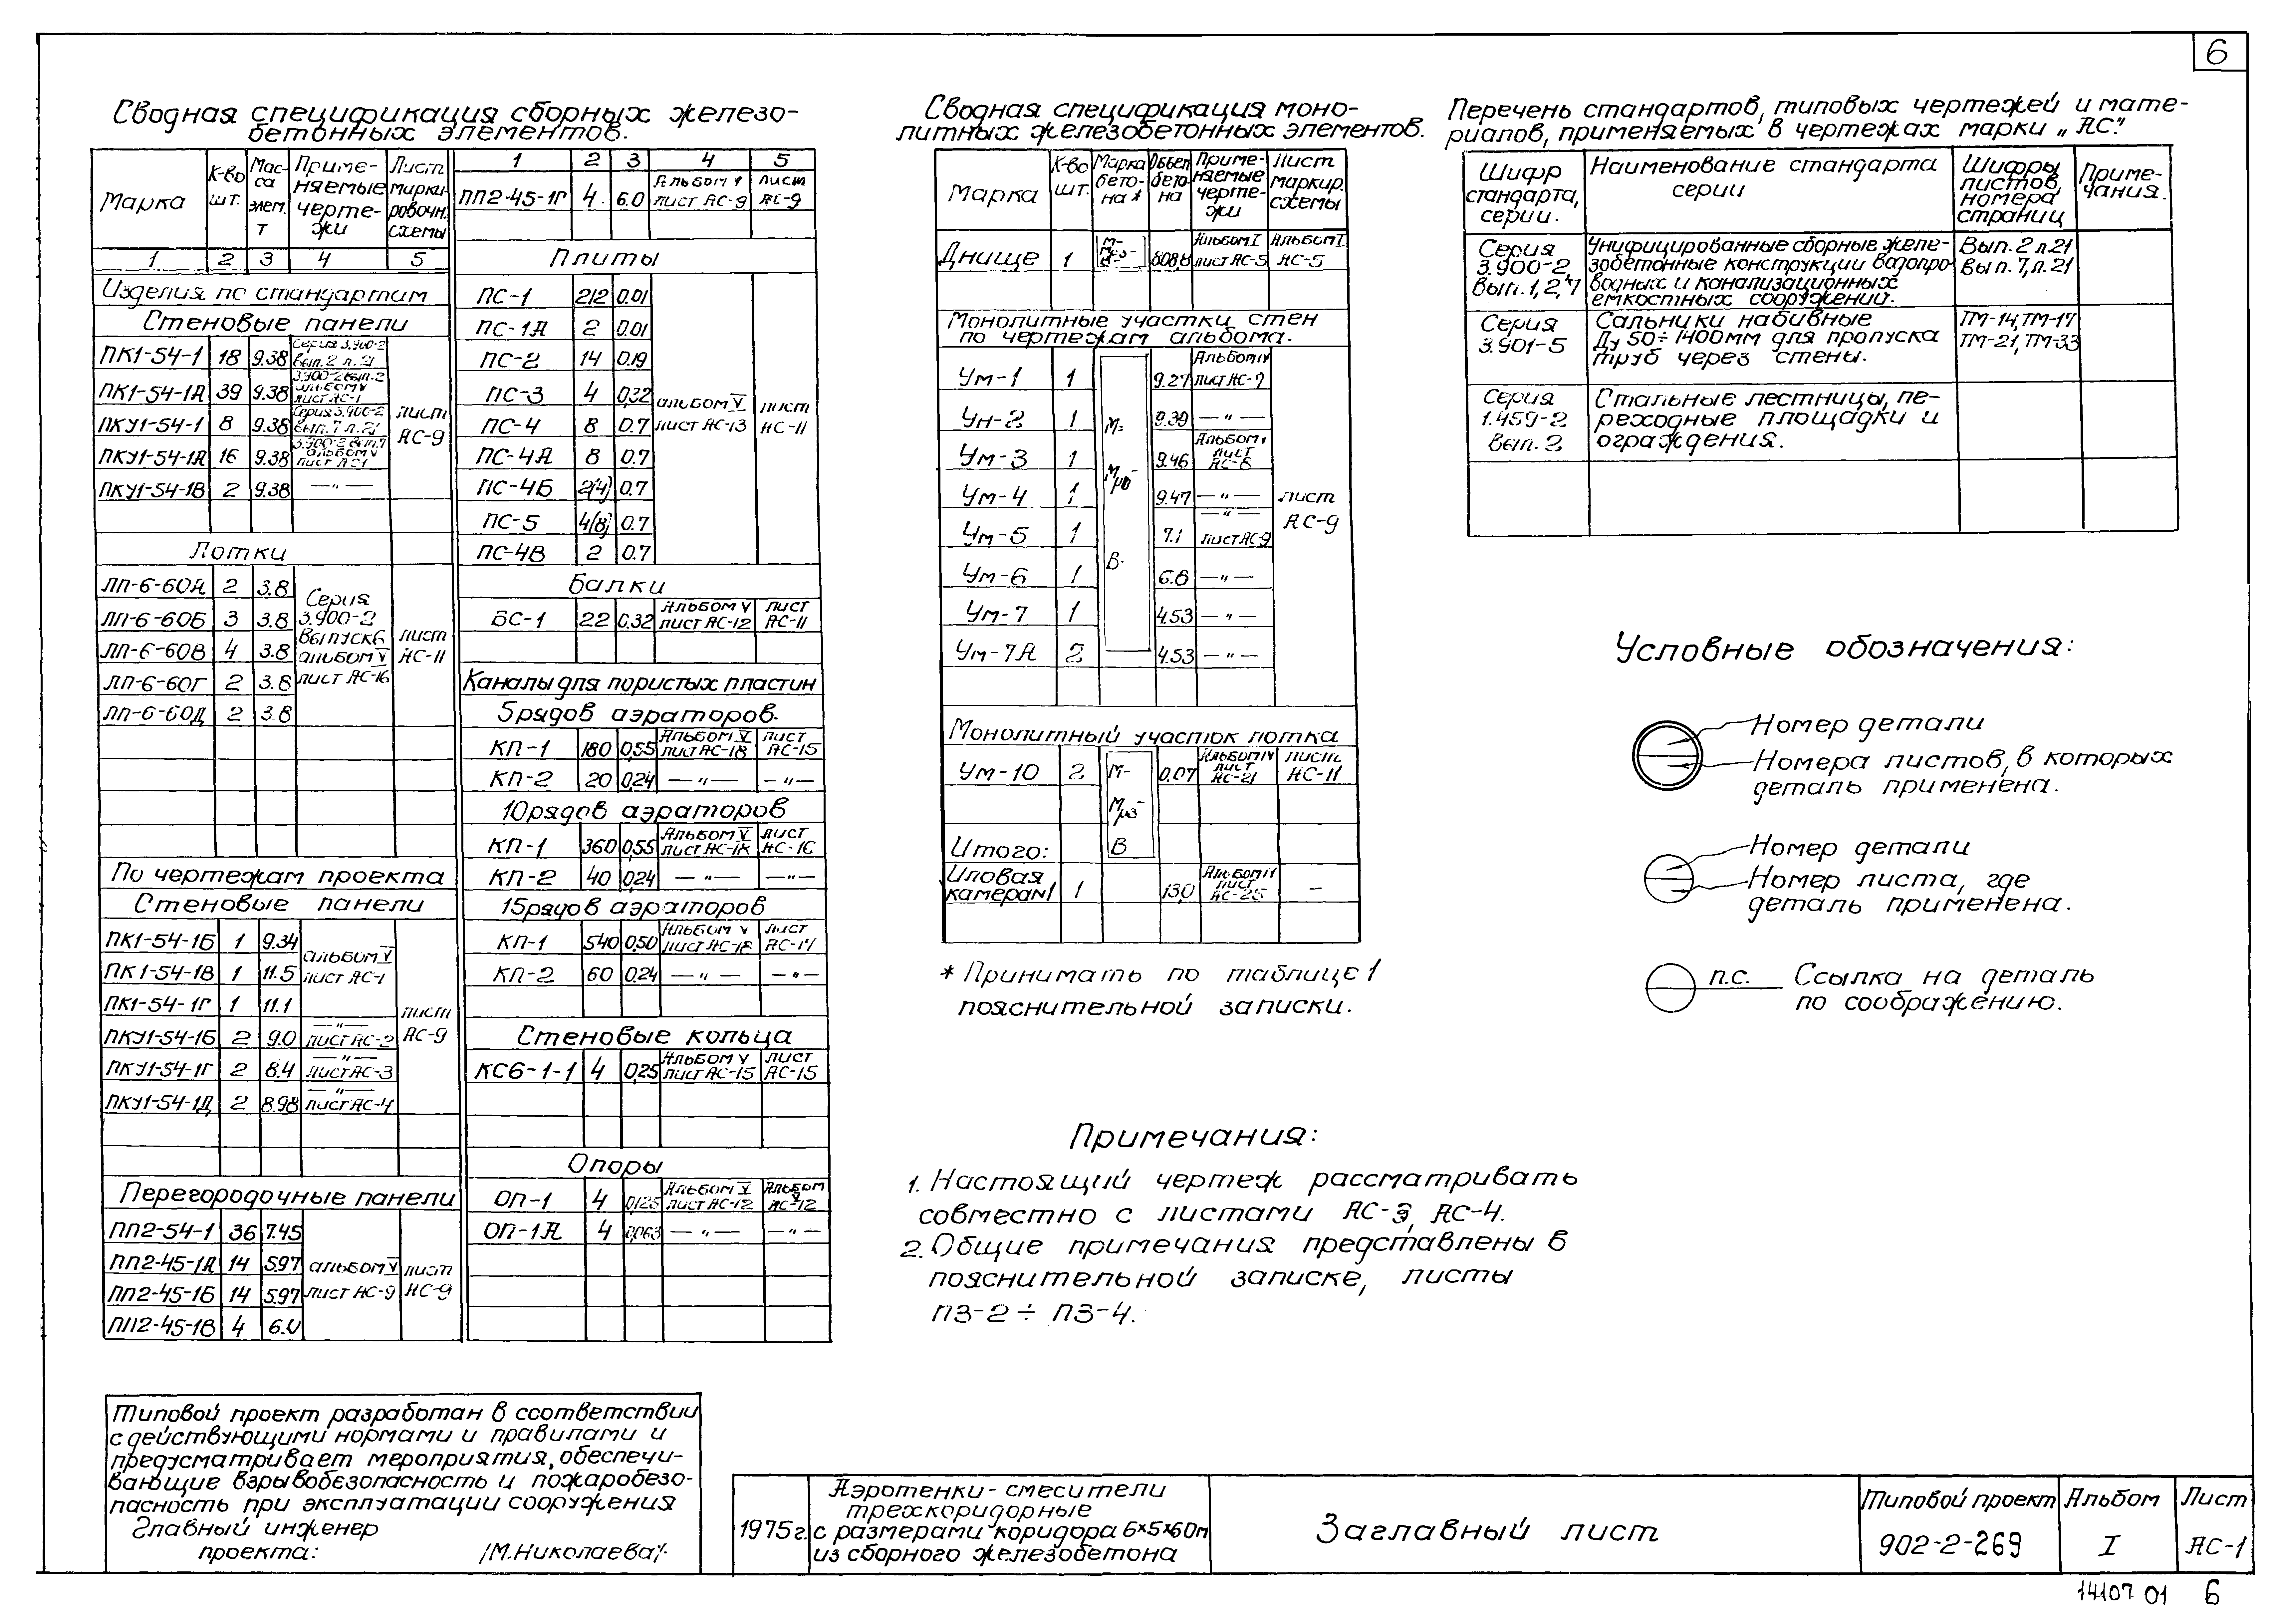 6
Сводная спецификация сборных железо-
бетонных элементов.
Марка | К-во шт. | Мас-са элем. т | Приме-няемые черте-жи | Лист марки-ровочн. схемы
1 | 2 | 3 | 4 | 5
Изделия по стандартам
Стеновые панели
ПК1-54-1 | 18 | 9.38 | Серия 3.900-2 вып. 2 л. 21 | лист АС-9
ПК1-54-1А | 39 | 9.38 | 3.900-2 вып. 2 альбом V лист АС-1
ПКУ1-54-1 | 8 | 9.38 | Серия 3.900-2 вып. 7 л. 21
ПКУ1-54-1А | 16 | 9.38 | 3.900-2 вып. 7 альбом V лист АС1
ПКУ1-54-1В | 2 | 9.38 | —"—
Лотки
ЛП-6-60А | 2 | 3.8 | Серия 3.900-2 выпуск 6 альбом V лист АС-16 | лист АС-11
ЛП-6-60Б | 3 | 3.8
ЛП-6-60В | 4 | 3.8
ЛП-6-60Г | 2 | 3.8
ЛП-6-60Д | 2 | 3.8
По чертежам проекта
Стеновые панели
ПК1-54-1Б | 1 | 9.34 | альбом V лист АС-1 | лист АС-9
ПК1-54-1В | 1 | 11.5
ПК1-54-1Г | 1 | 11.1
ПКУ1-54-1Б | 2 | 9.0 | —"— лист АС-2
ПКУ1-54-1Г | 2 | 8.4 | —"— лист АС-3
ПКУ1-54-1Д | 2 | 8.98 | —"— лист АС-4
Перегородочные панели
ПП2-54-1 | 36 | 7.45 | альбом V лист АС-9 | лист АС-9
ПП2-45-1А | 14 | 5.97
ПП2-45-1Б | 14 | 5.97
ПП2-45-1В | 4 | 6.0
1 | 2 | 3 | 4 | 5
ПП2-45-1Г | 4. | 6.0 | Альбом лист АС-9 | лист АС-9
Плиты
ПС-1 | 212 | 0.01 | альбом V лист АС-13 | лист АС-11
ПС-1А | 2 | 0.01
ПС-2 | 14 | 0.19
ПС-3 | 4 | 0,32
ПС-4 | 8 | 0.7
ПС-4А | 8 | 0.7
ПС-4Б | 2(4) | 0.7
ПС-5 | 4(8) | 0.7
ПС-4В | 2 | 0.7
Балки
БС-1 | 22 | 0.32 | Альбом V лист АС-12 | лист АС-11
Каналы для пористых пластин
5 рядов аэраторов.
КП-1 | 180 | 0,55 | Альбом V лист АС-18 | лист АС-15
КП-2 | 20 | 0,24 | —"— | —"—
10 рядов аэраторов
КП-1 | 360 | 0,55 | Альбом V лист АС-18 | лист АС-16
КП-2 | 40 | 0,24 | —"— | —"—
15 рядов аэраторов
КП-1 | 540 | 0,50 | Альбом V лист АС-18 | лист АС-17
КП-2 | 60 | 0.24 | —"— | —"—
Стеновые кольца
КС6-1-1 | 4 | 0,25 | Альбом V лист АС-15 | лист АС-15
Опоры
ОП-1 | 4 | 0,125 | Альбом V лист АС-12 | Альбом V АС-12
ОП-1А | 4 | 0,063 | —"— | —"—
Сводная спецификация моно-
литных железобетонных элементов.
Марка | К-во шт. | Марка бето-на * | Объем бето-на | Приме-няемые черте-жи | Лист маркир. схемы
Днище | 1 | М- | Альбом I лист АС-5 | Альбом I АС-5
Монолитные участки стен
по чертежам альбома.
Ум-1 | 1 | 9.27 | Альбом IV лист АС-7 | лист АС-9
Ум-2 | 1 | М- | 9.39 | —"—
Ум-3 | 1 | 9.46 | Альбом V лист АС-8
Ум-4 | 1 | 9.47 | —"—
Ум-5 | 1 | 7.1 | —"— лист АС-9
Ум-6 | 1 | В- | 6.8 | —"—
Ум-7 | 1 | 4.53 | —"—
Ум-7А | 2 | 4.53 | —"—
Монолитный участок лотка
Ум-10 | 2 | М- Мрз- В | 0,07 | Альбом IV лист АС-21 | Лист АС-11
Итого:
Иловая камера №1 | 1 | 13,0 | Альбом IV лист АС-25 | –
* Принимать по таблице 1
пояснительной записки.
Перечень стандартов, типовых чертежей и мате-
риалов, применяемых в чертежах марки „АС".
Шифр стандарта, серии. | Наименование стандарта серии | Шифры листов, номера страниц | Приме-чания.
Серия 3.900-2, Вып. 1, 2, 7 | Унифицированные сборные желе-зобетонные конструкции водопро-водных и канализационных емкостных сооружений. | Вып. 2 л. 21 Вып. 7, л. 21
Серия 3.901-5 | Сальники набивные Ду 50÷1400мм для пропуска труб через стены. | ТМ-14, ТМ-17 ТМ-21, ТМ-33
Серия 1.459-2 вып. 2 | Стальные лестницы, пе-реходные площадки и ограждения.
Условные обозначения:
Номер детали
Номера листов, в которых
деталь применена.
Номер детали
Номер листа, где
деталь применена.
п.с. Ссылка на деталь
по соображению.
Примечания:
1. Настоящий чертеж рассматривать
совместно с листами АС-3, АС-4.
2. Общие примечания представлены в
пояснительной записке, листы
ПЗ-2 ÷ ПЗ-4.
Типовой проект разработан в соответствии
с действующими нормами и правилами и
предусматривает мероприятия, обеспечи-
вающие взрывобезопасность и пожаробезо-
пасность при эксплуатации сооружения
Главный инженер
проекта: /М.Николаева/.
1975г.
Аэротенки-смесители
трехкоридорные
с размерами коридора 6×5×60м
из сборного железобетона
Заглавный лист
Типовой проект
902-2-269
Альбом
I
Лист
АС-1
14107 01 6